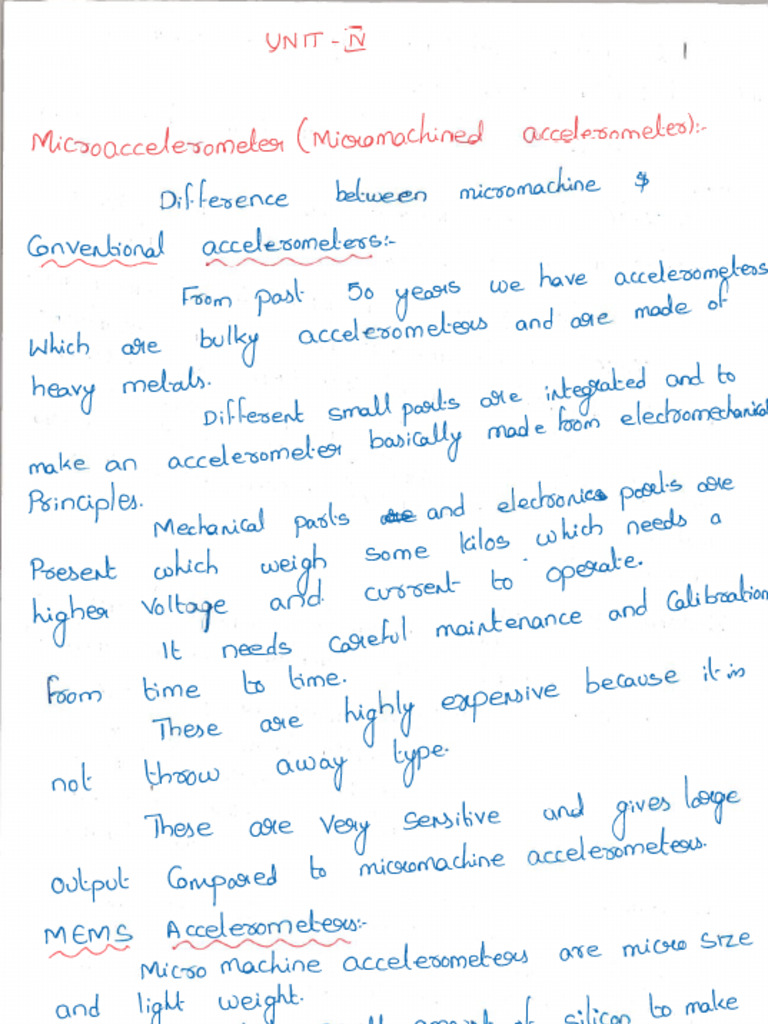 UNIT - IV
1
Microaccelerometer (Micromachined accelerometer):-
Difference between micromachine &
Conventional accelerometers:-
From past 50 years we have accelerometers
Which are bulky accelerometers and are made of
heavy metals.
Different small parts are integrated and to
make an accelerometer basically made from electromechanical
Principles.
Mechanical parts and electronics parts are
Present which weigh some kilos which needs a
higher voltage and current to operate.
It needs careful maintenance and Calibration
from time to time.
These are highly expensive because it is
not throw away type.
These are very sensitive and gives large
output Compared to micromachine accelerometers.
MEMS Accelerometers:-
Micro machine accelerometers are micro size
and light weight.
amount of silicon to make